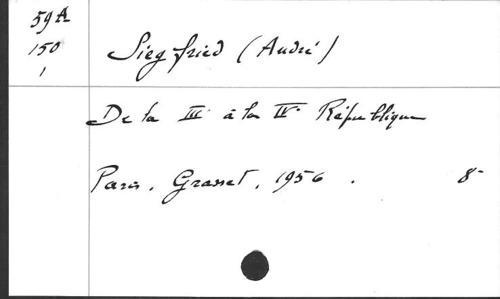 59 A
150
1
Siegfried (André)
De la IIIe à la IVe République
Paris, Grasset, 1956. 8-